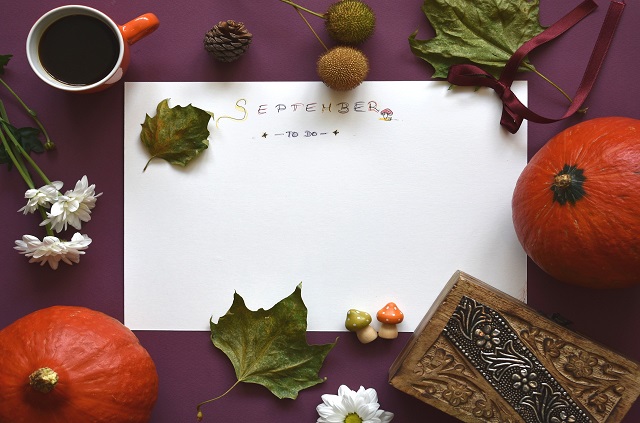 SEPTEMBER
- TO DO -